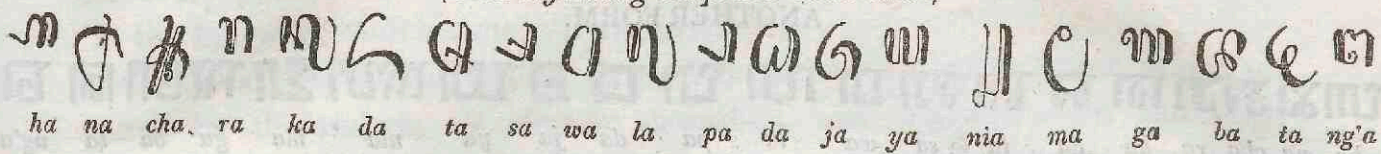 ꦲ ꦤ ꦕ ꦫ ꦏ ꦢ ꦠ ꦱ ꦮ ꦭ ꦥ ꦝ ꦗ ꦪ ꦚ ꦩ ꦒ ꦧ ꦛ ꦔ
ha na cha. ra ka da ta sa wa la pa da ja ya nia ma ga ba ta ng'a